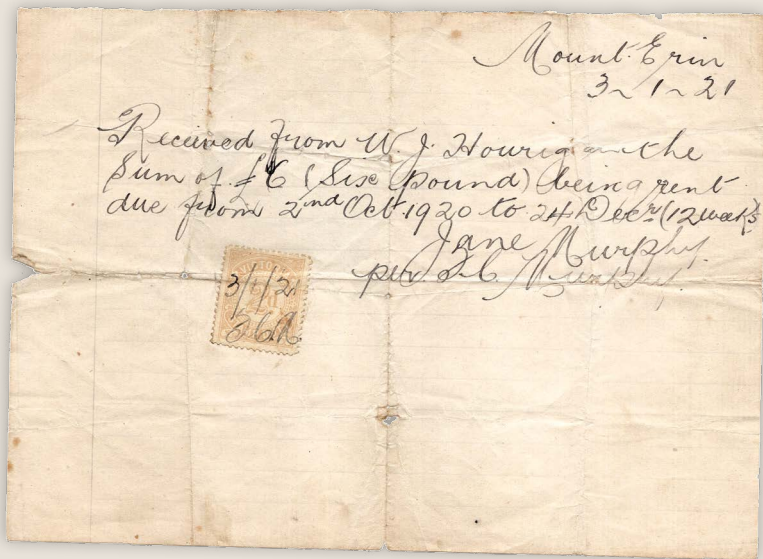 Mount Erin
3~1~21
Received from W. J. Hourigan the
Sum of £6 (Sixe pound) being rent
due from 2nd Oct 1920 to 24 Decr (12 weeks
Jane Murphy.
per Murphy.
3/1/21